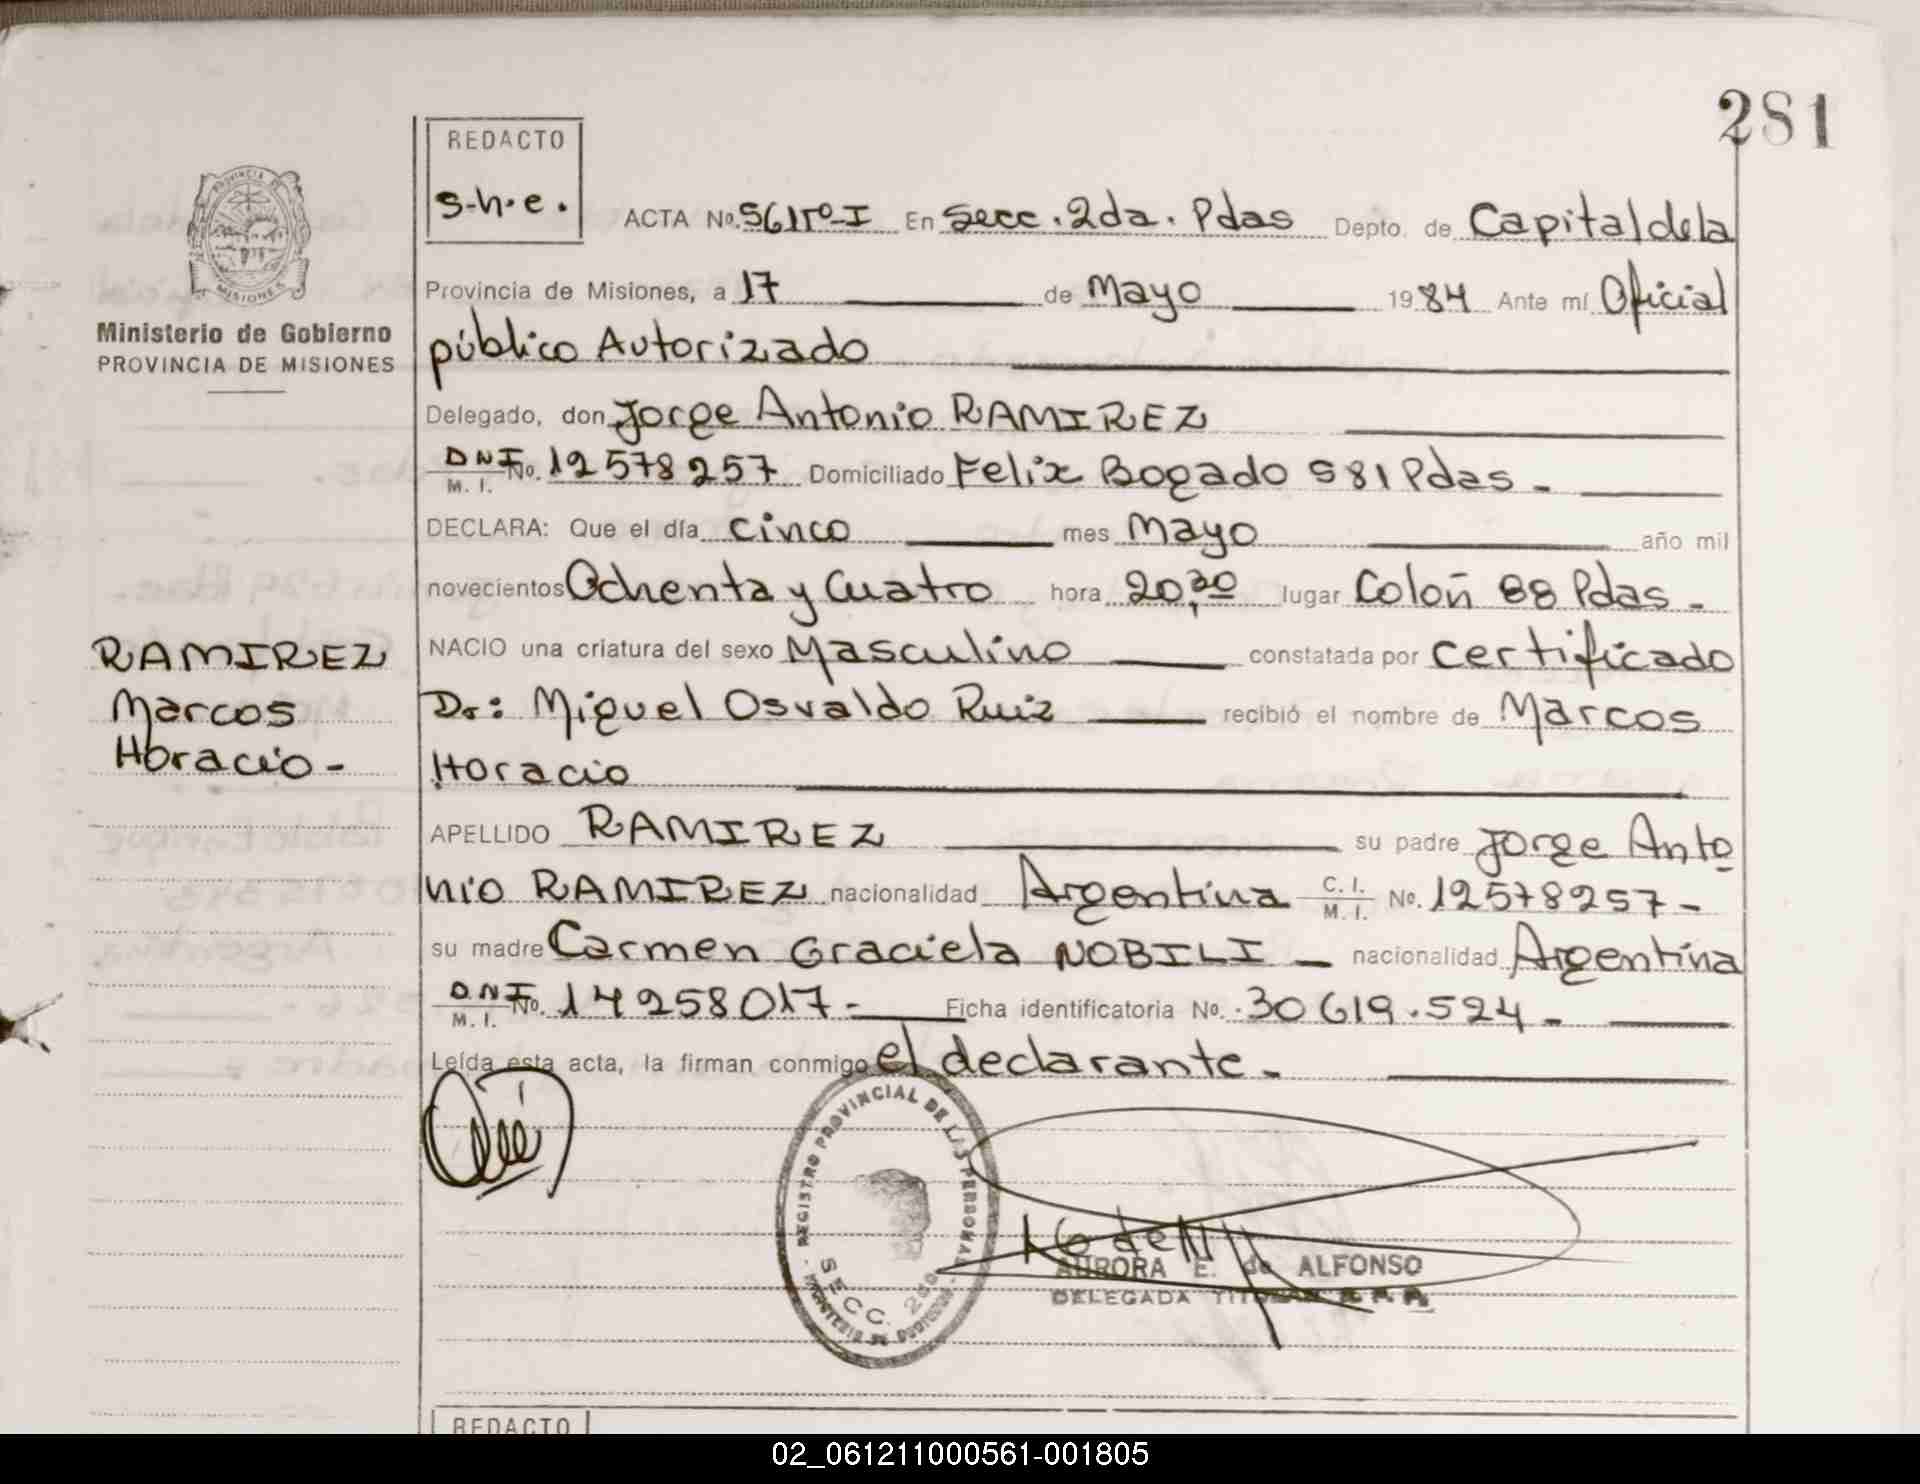 281
REDACTO
s-h.e.
ACTA No. 561 Tº-I En Secc. 2da. Pdas Depto. de Capital de la
PROVINCIA DE
MISIONES
Ministerio de Gobierno
PROVINCIA DE MISIONES
Provincia de Misiones, a 17 de Mayo 1984 Ante mí Oficial
público Autorizado
Delegado, don Jorge Antonio RAMIREZ
DNI No. 12578257 Domiciliado Felix Bogado 581 Pdas -
M. I.
DECLARA: Que el día cinco mes Mayo año mil
novecientos Ochenta y Cuatro hora 20,30 lugar Colón 88 Pdas -
NACIO una criatura del sexo Masculino constatada por Certificado
Dr: Miguel Osvaldo Ruiz recibió el nombre de Marcos
Horacio
RAMIREZ
Marcos
Horacio -
APELLIDO RAMIREZ su padre Jorge Anto
nio RAMIREZ nacionalidad Argentina C. I. M. I. No. 12578257 -
su madre Carmen Graciela NOBILI - nacionalidad Argentina
DNI No. 14258017 - Ficha identificatoria No. 30619.524 -
M. I.
Leída esta acta, la firman conmigo el declarante -
REGISTRO PROVINCIAL DE LAS PERSONAS
SECC. 2da
AURORA E. de ALFONSO
DELEGADA
REDACTO
02_061211000561-001805